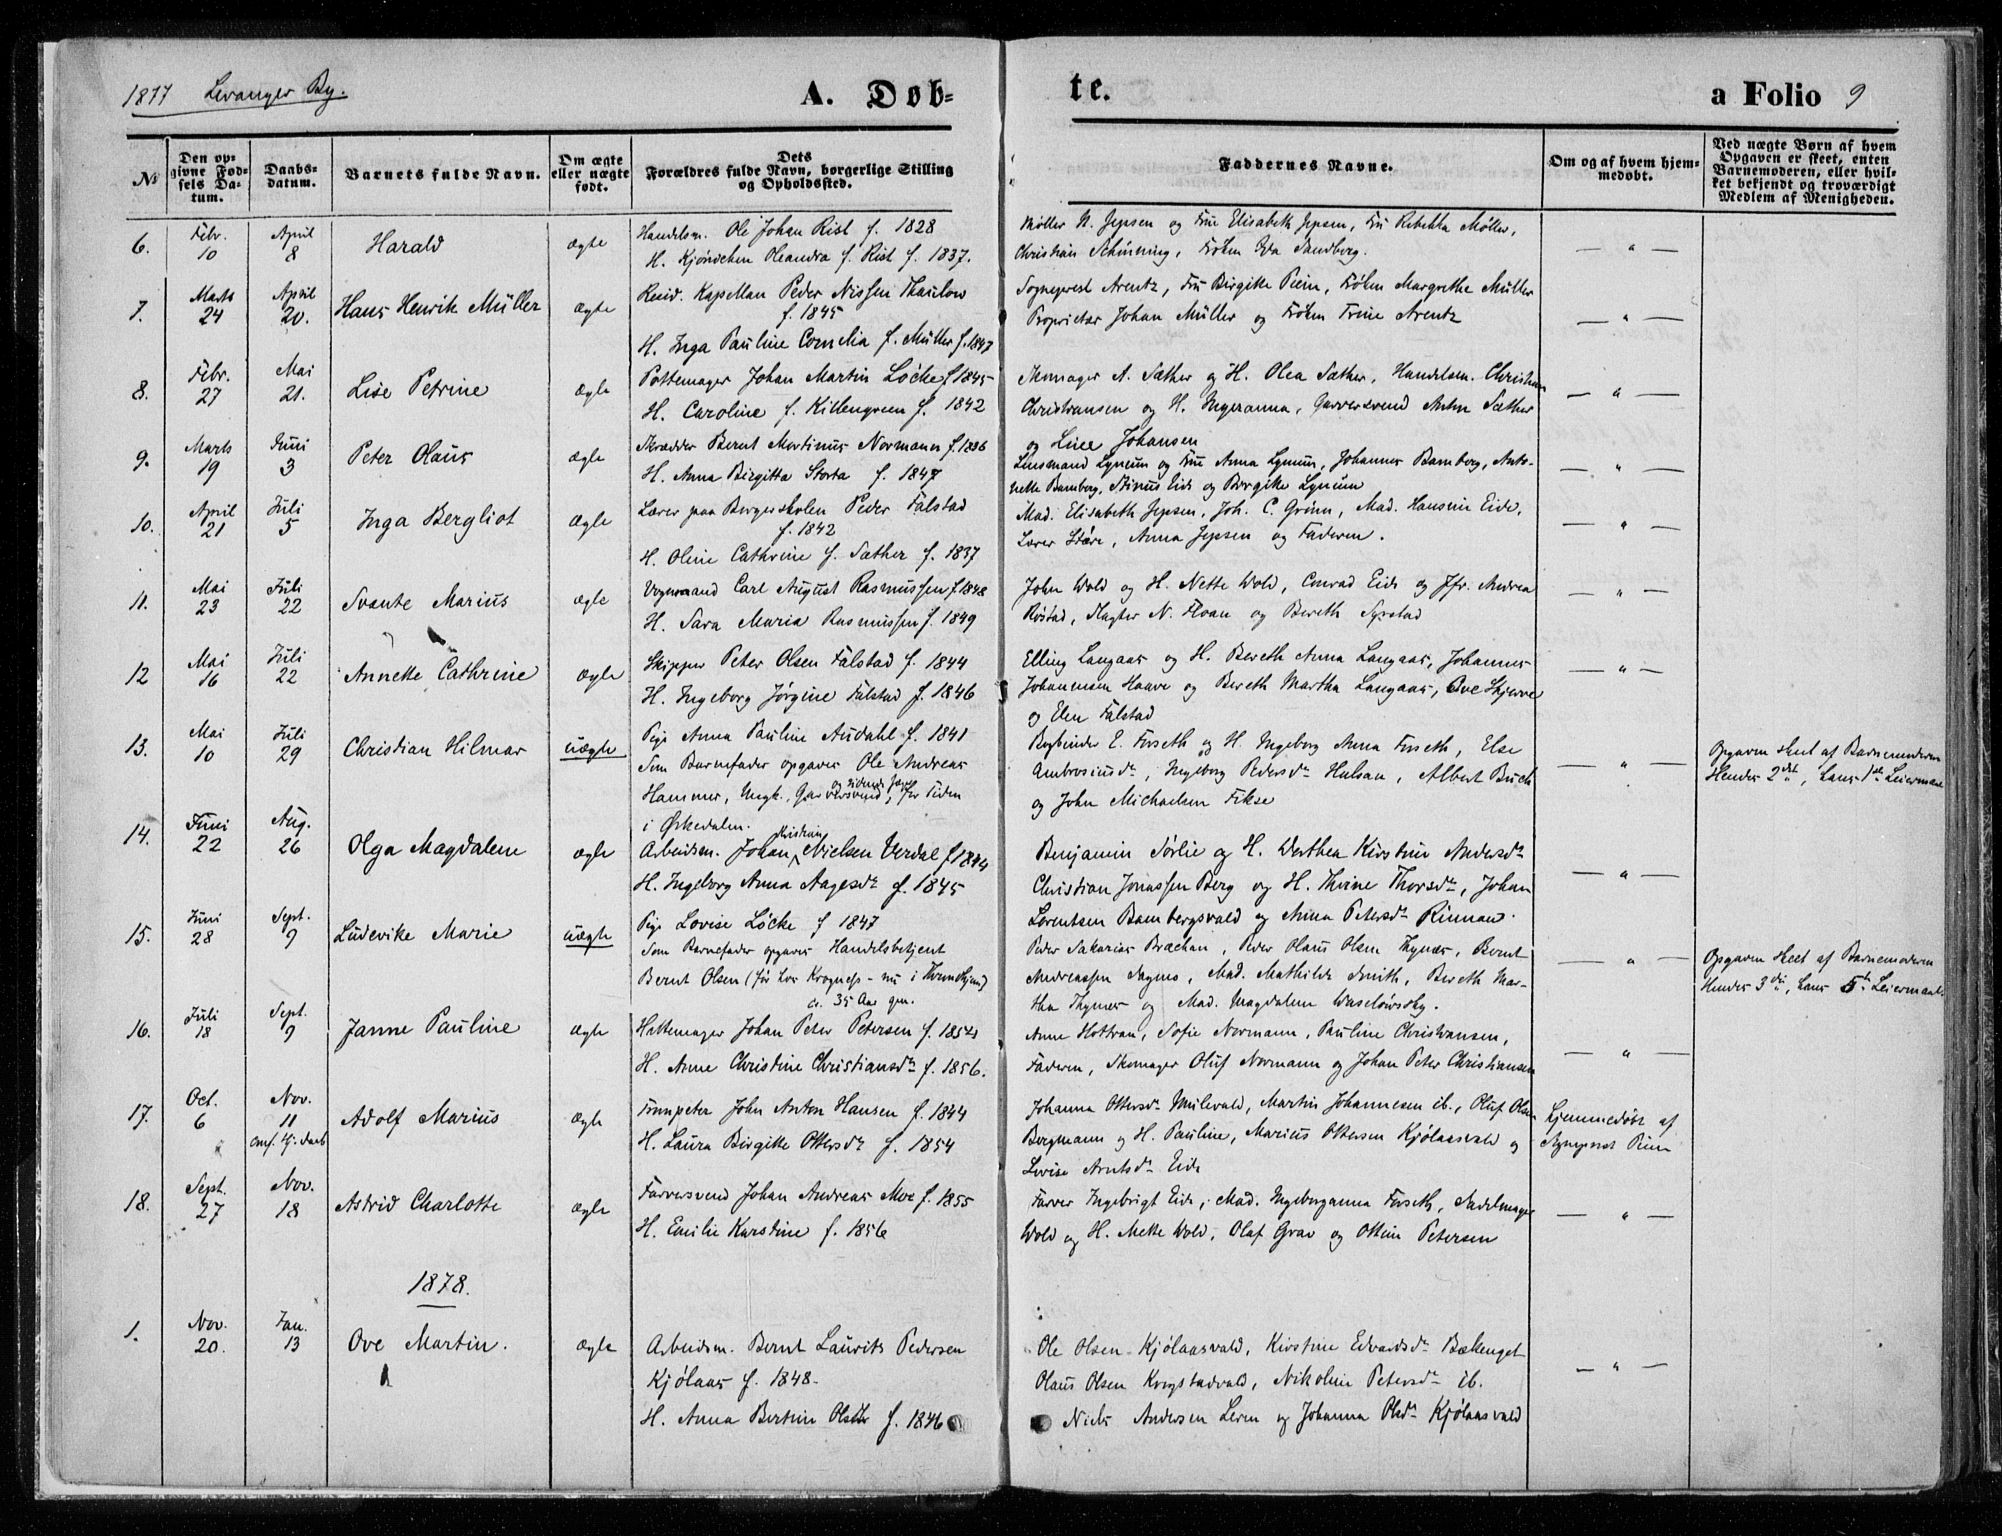 1877 Levanger By.
A. Døb-
te.
a Folio 9
No
Den op-
givne Fød-
sels Da-
tum.
Daabs-
datum.
Barnets fulde Navn.
Om ægte
eller uægte
født.
Dets
Forældres fulde Navn, borgerlige Stilling
og Opholdssted.
Faddernes Navne.
Om og af hvem hjem-
medøbt.
Ved uægte Børn af hvem
Opgaven er skeet, enten
Barnemoderen, eller hvil-
ket bekjendt og troværdigt
Medlem af Menigheden.
6.
Febr.
10
April
8
Harald
ægte
Handelsm. Ole Johan Rist f. 1828
H. Oleandra f. Rist f. 1837.
Møller N. Jepsen og Fru Elisabeth Jepsen, Fru Rebekka Møller,
Christian Schünning, Frøken Eva Sandberg.
— " —
7.
Marts
24
April
20.
Hans Henrik Müller
ægte
Resid. Kapellan Peder Nissen Thaulow
f. 1845
H. Inga Pauline Cornelia f. Müller f. 1847
Sogneprest Arentz, Fru Birgitte Peim, Frøken Margrethe Müller
Proprietær Johan Müller og Frøken Trine Arentz
— " —
8.
Febr.
27
Mai
21.
Lise Petrine
ægte
Pottemager Johan Martin Löcke f 1845
H. Caroline f. Killengreen f. 1842
Skomager A. Sæther og H. Olea Sæther, Handelsm. Christian
Christiansen og H. Ingeranna, Garversvend Anton Sæther
og Line Johansen
— " —
9.
Marts
19
Juni
3
Peter Olaus
ægte
Skrædder Bernt Martinus Normann f. 1836
H. Anna Birgitta Storta f. 1847
Lensmand Lyneum og Fru Anna Lyneum, Johannes Bamberg, Anto-
nette Bamberg, Stinus Eide og Birgitte Lyneum
— " —
10.
April
21
Juli
5
Inga Bergliot
ægte
Lærer paa Borgerskolen Peder Falstad
f. 1842
H. Oline Cathrine f. Sæther f. 1837
Mad. Elisabeth Jepsen, Joh. C. Grönn, Mad. Hansine Eide,
Lærer Støre, Anna Jepsen og Faderen.
— " —
11.
Mai
23
Juli
22
Svante Marius
ægte
Vognmand Carl August Rasmussen f. 1848
H. Sara Maria Rasmussen f. 1849
John Wold og H. Nette Wold, Conrad Eide og Jfr. Andrea
Røstad, Slagter N. Floan og Bereth
— " —
12
Mai
16
Juli
22
Annette Cathrine
ægte
Skipper Peter Olsen Falstad f. 1844
H. Ingeborg Jørgine Falstad f. 1846
Elling Langaas og H. Bereth Anna Langaas, Johannes
Johannesen Haave og Bereth Martha Langaas, Ove Skjerve
og Elen Falstad
— " —
13.
Mai
10
Juli
29
Christian Hilmar
uægte
Pige Anna Pauline Audahl f. 1841
Som Barnefader opgaves Ole Andreas
Hammer, Ungk., Garversvend, for Tiden
i Ørkedalen.
Bogbinder E. Forseth og H. Ingeborg Anna Forseth, Else
Ambrosiusdr, Ingeborg Pedersdr Hulsan, Albert Buch
og John Michaelsen Fikse
— " —
Opgaven skeet af Barnemoderen
Hendes 2det, hans 1ste Leiermaal
14.
Juni
22
Aug.
26
Olga Magdalene
ægte
Arbeidsm. Johan Kristian Nielsen Verdal f 1844
H. Ingeborg Anna Aagesdr f. 1845
Benjamin Sørlie og H. Dorthea Kirstine Andersdr
Christian Jonassen Berg og H. Thrine Thorsdr, Johan
Lorentsen Bambergsvald og Anna Petersdr Rinnan.
— " —
15.
Juni
28
Sept.
9
Ludevike Marie
uægte
Pige Lovise Löcke f 1847
Som Barnefader opgaves Handelsbetjent
Bernt Olsen (før hos Krogness - nu i Throndhjem)
c. 35 Aar gm.
Peder Sakarias Brachan, Peder Olaus Olsen Thynæs, Bernt
Andreassen Sagmo, Mad. Mathilde Smith, Bereth Mar-
tha Thynæs og Mad. Magdalene
— " —
Opgaven skeet af Barnemoderen
Hendes 3die, hans 5te Leiermaal.
16.
Juli
18
Sept.
9
Janne Pauline
ægte
Hattemager Johan Peter Petersen f. 1854
H. Anne Christine Christiansdr f. 1856.
Anne Hottran, Sofie Normann, Pauline Christiansen,
Faderen, Skomager Oluf Normann og Johan Peter Christiansen
— " —
17.
Oct.
6
Nov.
11
Adolf Marius
ægte
Trompeter John Anton Hansen f. 1844
H. Laura Birgitte Ottersdr f. 1854
Johanna Ottersdr Mulevald, Martin Johannesen ib., Oluf Olsen
Bergmann og H. Pauline, Marius Ottersen Kjölaasvald og
Lovise Arntsdr Eide
Hjemmedøbt af
Sogneprest Peim
18.
Sept.
27
Nov.
18
Astrid Charlotte
ægte
Farversvend Johan Andreas Moe f. 1855
H. Emilie Karstine f. 1856
Farver Ingebrigt Eide, Mad. Ingeborganna Forseth, Sadelmager
Wold og H. Mette Wold, Olaf Grav og Ottine Petersen
— " —
1878.
1.
Nov.
20.
Jan.
13
Ove Martin.
ægte
Arbeidsm. Bernt Laurits Pedersen
Kjölaas f. 1848.
H. Anna Bertine Olsdr f. 1846
Ole Olsen Kjölaasvald, Kirstine Edvardsdr Bækenget
Olaus Olsen Krogstadvald, Nikoline Petersdr ib.
Niels Andersen Leren og Johanna Olsdr Kjölaasvald
— " —